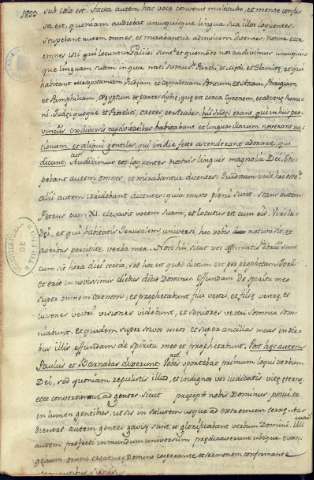 sub cœlo est. Facta autem hac voce convenit multitudo, et mente confu
sa est, quoniam audiebat unusquisque lingua sua illos loquentes.
Stupebant autem omnes, et mirabantur dicentes: nonne ecce
omnes isti qui loquuntur Galilei sunt, et quomodo nos audivimus unusquis
que linguam suam in qua nati sumus? Parthi, et Medi, et Elamitæ, et qui
habitant Mesopotamiam Judeam et Capadociam Pontum et Asiam Phrygiam
et Pamphiliam Egyptum et partes Lybiæ, quæ est circa Cyrenem, et advenæ Roma
ni. Judei quoque et Proseliti, Cretes et Arabes,
et linguas
et aliqui gentiles, qui in die festo
dicunt, Audivimus eos loquentes nostris linguis magnalia Dei. Stu
pebant autem omnes, et mirabantur dicentes: quidnam vult hoc esse?
alii autem irridebant dicentes: quia musto pleni sunt. Stans autem
Petrus cum XI. elevavit vocem suam, et locutus est eis. Viri Ju
dei, et qui habitatis Jerusalem universi, hoc vobis notum sit, et
auribus percipite verba mea. Non hi sicut vos estimatis ebrii sunt
cum sit hora diei tertia, sed hoc est quod dictum est per prophetam Joel:
et erit in novissimis diebus dicit Dominus effundam de spiritu meo
super omnem carnem, et prophetabunt filii vestri, et filiæ vestræ, et
juvenes vestri visiones videbunt, et seniores vestri somnia som
niabunt. et quidem super servos meos et super ancillas meas in die
bus illis effundam de spiritu meo et prophetabunt. Post hæc autem
Paulus et Barnabas dixerunt: Vobis oportebat primum loqui verbum
Dei, sed quoniam repulistis illud, et indignos vos judicastis vitæ æternæ,
ecce convertimur ad gentes. sicut præcepit nobis Dominus: posui te
in lumen gentibus, ut sis in salutem usque ad extremum terræ.
autem gentes gavisæ sunt et glorificabant verbum Domini. Illi
autem profecti in mundum universum, predicaverunt ubique evan
gelium, Domino cooperante et sermonem confirmante